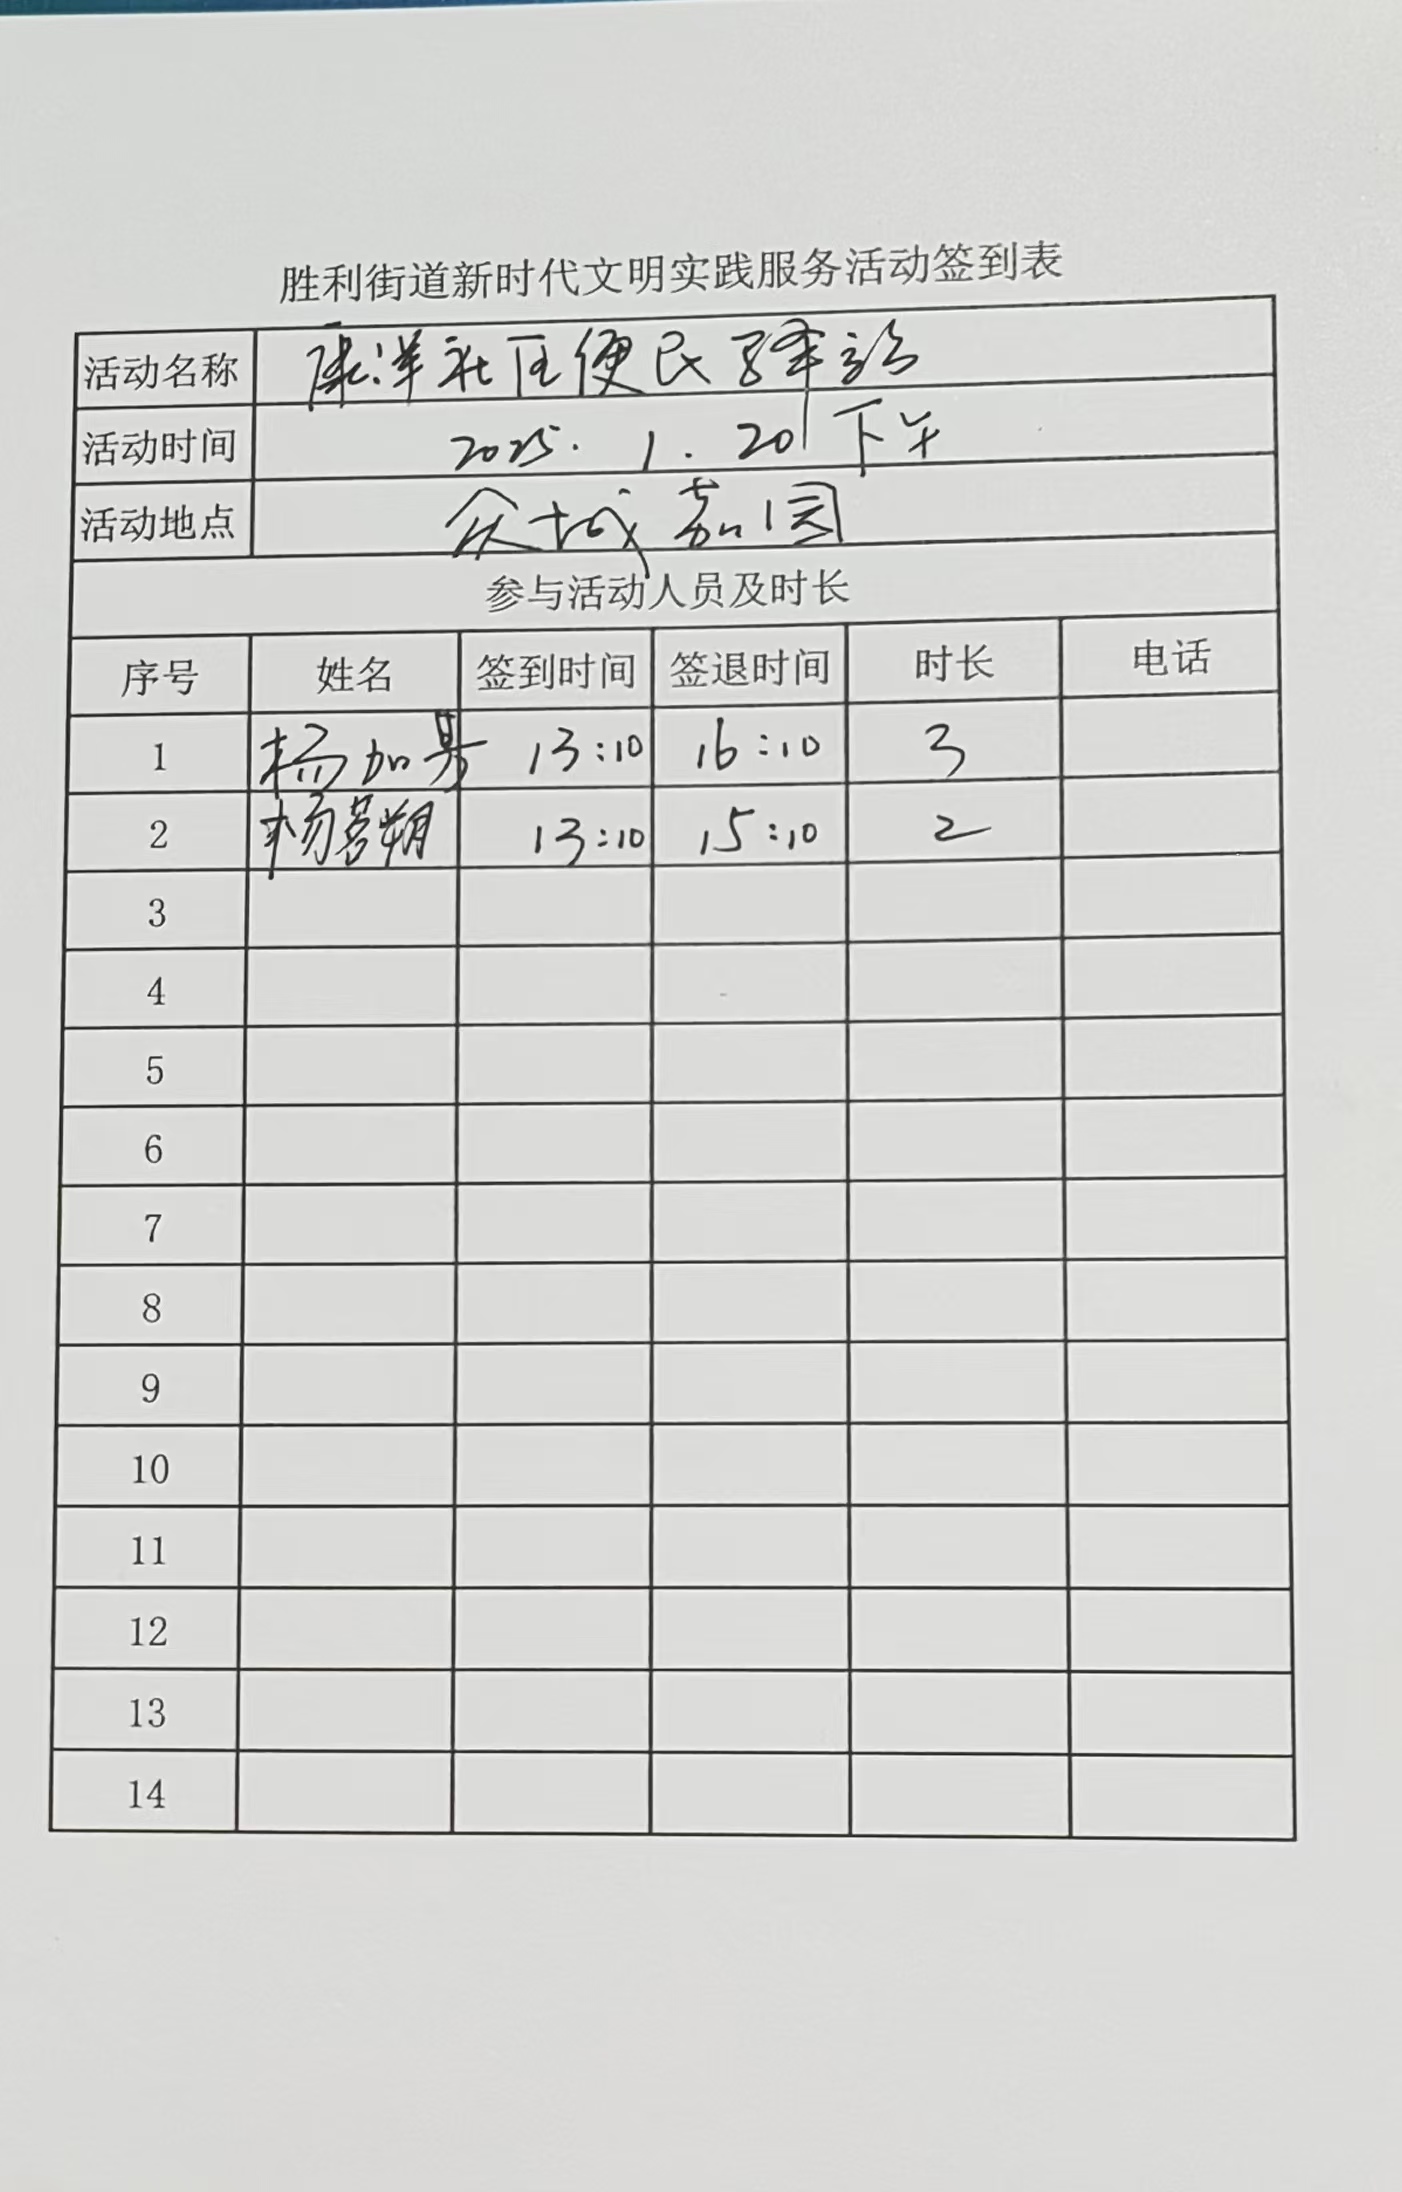 胜利街道新时代文明实践服务活动签到表
活动名称 康洋社区便民驿站
活动时间 2025.1.20 下午
活动地点 众城嘉园
参与活动人员及时长
序号 姓名 签到时间 签退时间 时长 电话
1 杨加 13:10 16:10 3
2 杨茗朔 13:10 15:10 2
3
4
5
6
7
8
9
10
11
12
13
14